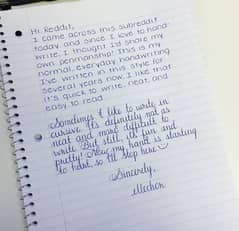 Hi, Reddit,
I came across this subreddit
today, and since I love to hand-
write, I thought I'd share my
own penmanship! This is my
normal, everyday handwriting.
I've written in this style for
several years now. I like that
it's quick to write, neat, and
easy to read.
Sometimes, I like to write in
cursive. It's definitely not as
neat and more difficult to
write. But still, it's fun and
pretty! Now my hand is starting
to hurt, so I'll stop here
Sincerely,